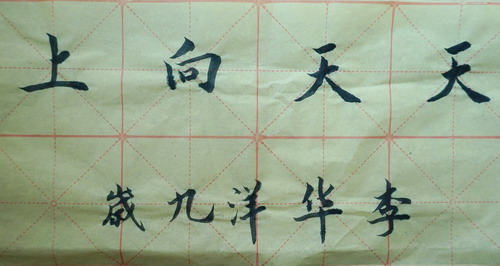 天天向上
李华洋九歲